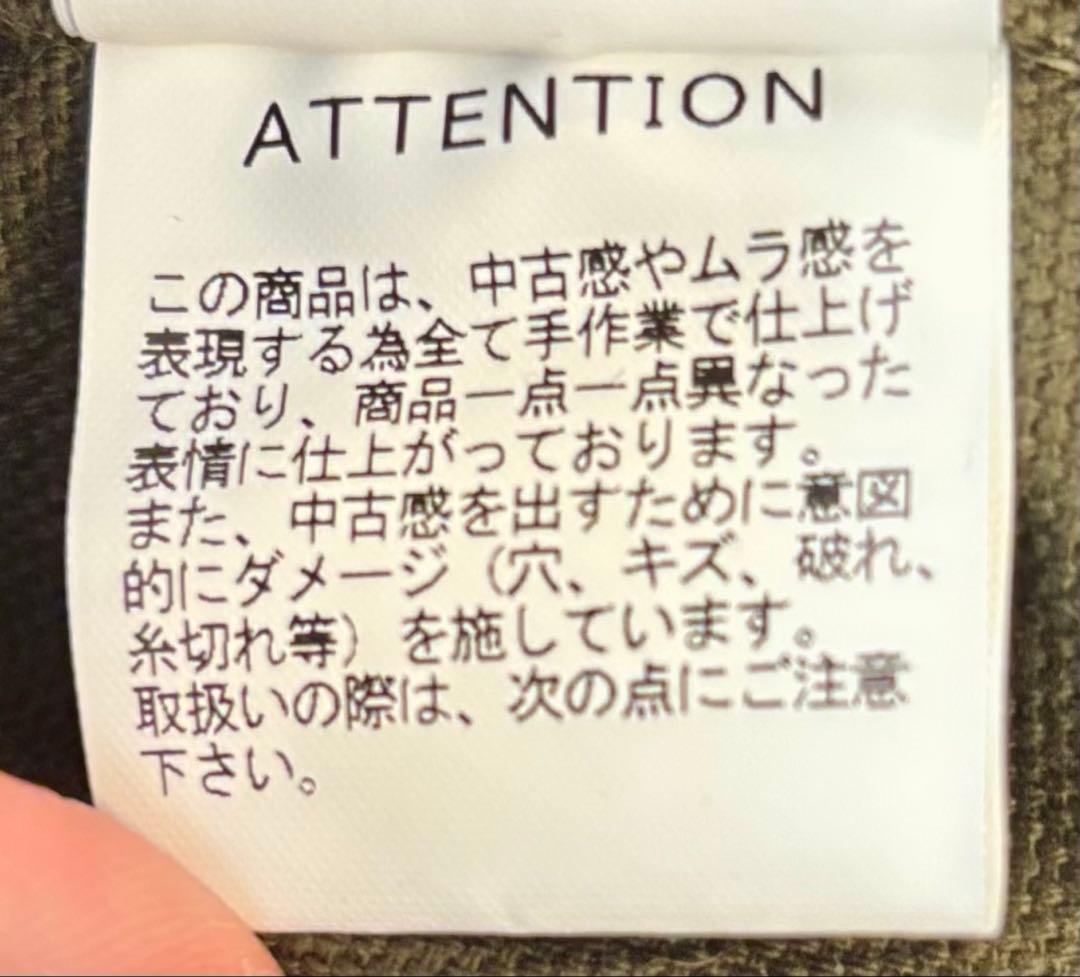 ATTENTION
この商品は、中古感やムラ感を
表現する為全て手作業で仕上げ
ており、商品一点一点異なった
表情に仕上がっております。
また、中古感を出すために意図
的にダメージ（穴、キズ、破れ、
糸切れ等）を施しています。
取扱いの際は、次の点にご注意
下さい。